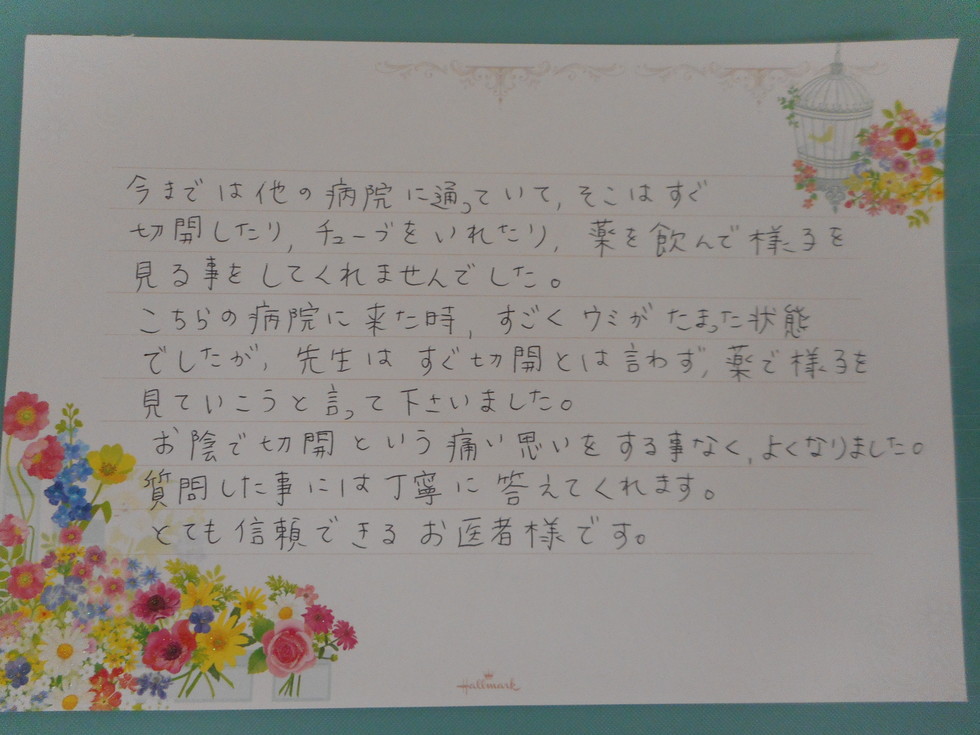 今までは他の病院に通っていて、そこはすぐ
切開したり、チューブをいれたり、薬を飲んで様子を
見る事をしてくれませんでした。
こちらの病院に来た時、すごくウミがたまった状態
でしたが、先生はすぐ切開とは言わず、薬で様子を
見ていこうと言って下さいました。
お陰で切開という痛い思いをする事なく、よくなりました。
質問した事には丁寧に答えてくれます。
とても信頼できるお医者様です。
Hallmark